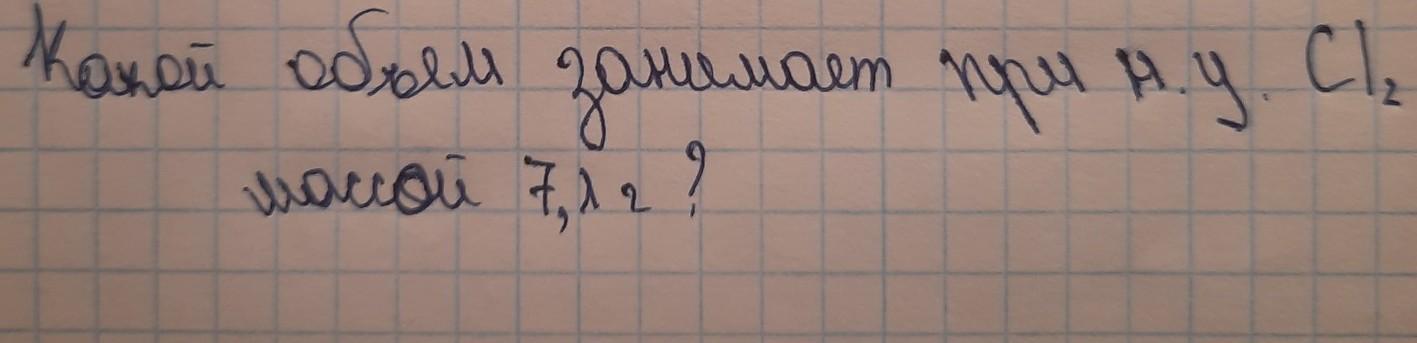 Какой объем занимает при н.у. Cl₂
массой 7,1 г?